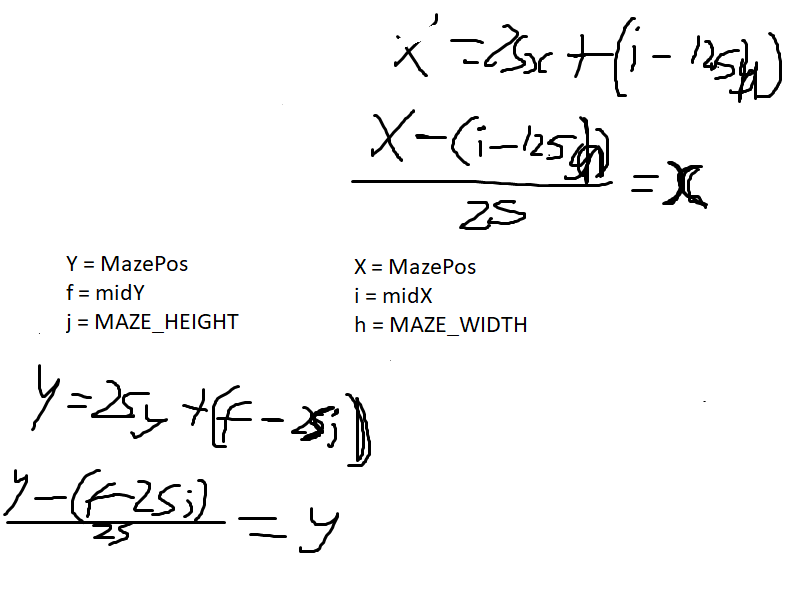 x' = 25x + (i - 12.5h)
X - (i - 12.5h)
25
= x
Y = MazePos
f = midY
j = MAZE_HEIGHT
X = MazePos
i = midX
h = MAZE_WIDTH
Y = 25y + (f - 25j)
Y - (f - 25j)
25
= y